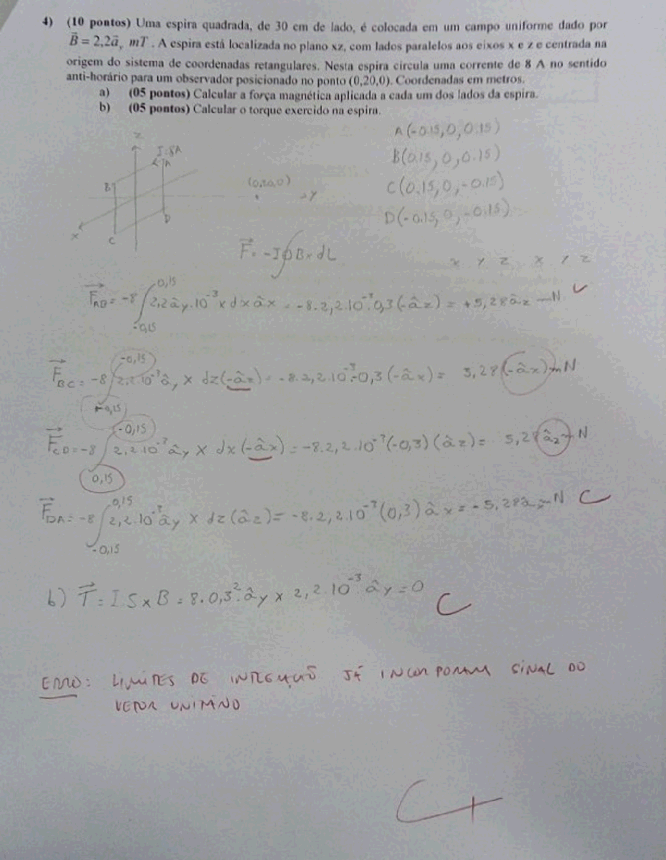 4) (10 pontos) Uma espira quadrada, de 30 cm de lado, é colocada em um campo uniforme dado por
B⃗ = 2,2a⃗y mT. A espira está localizada no plano xz, com lados paralelos aos eixos x e z e centrada na
origem do sistema de coordenadas retangulares. Nesta espira circula uma corrente de 8 A no sentido
anti-horário para um observador posicionado no ponto (0,20,0). Coordenadas em metros.
a) (05 pontos) Calcular a força magnética aplicada a cada um dos lados da espira.
b) (05 pontos) Calcular o torque exercido na espira.
A(-0.15,0,0.15)
B(0.15,0,0.15)
C(0.15,0,-0.15)
D(-0.15,0,-0.15)
z
I=8A
A
B
(0,20,0)
y
D
x
C
F⃗ = -I∮B×dL
x y z x y z
F⃗AB = -8∫ -0,15 0,15 2,2ây.10⁻³ × dx âx = -8.2,2.10⁻³.0,3(-âz) = +5,28âz mN
F⃗BC = -8∫ +0,15 -0,15 2,2.10⁻³ây × dz(-âz) = -8.2,2.10⁻³.-0,3(-âx) = 5,28(-âx) mN
F⃗CD = -8∫ 0,15 -0,15 2,2.10⁻³ây × dx(-âx) = -8.2,2.10⁻³(-0,3)(âz) = 5,28 âz mN
F⃗DA = -8∫ -0,15 0,15 2,2.10⁻³ây × dz(âz) = -8.2,2.10⁻³(0,3)âx = -5,28âx mN C
b) T⃗ = I S×B = 8.0,3².ây × 2,2.10⁻³ ây = 0 C
ERRO: LIMITES DE INTEGRAÇÃO JÁ INCORPORAM SINAL DO
VETOR UNITÁRIO
C+